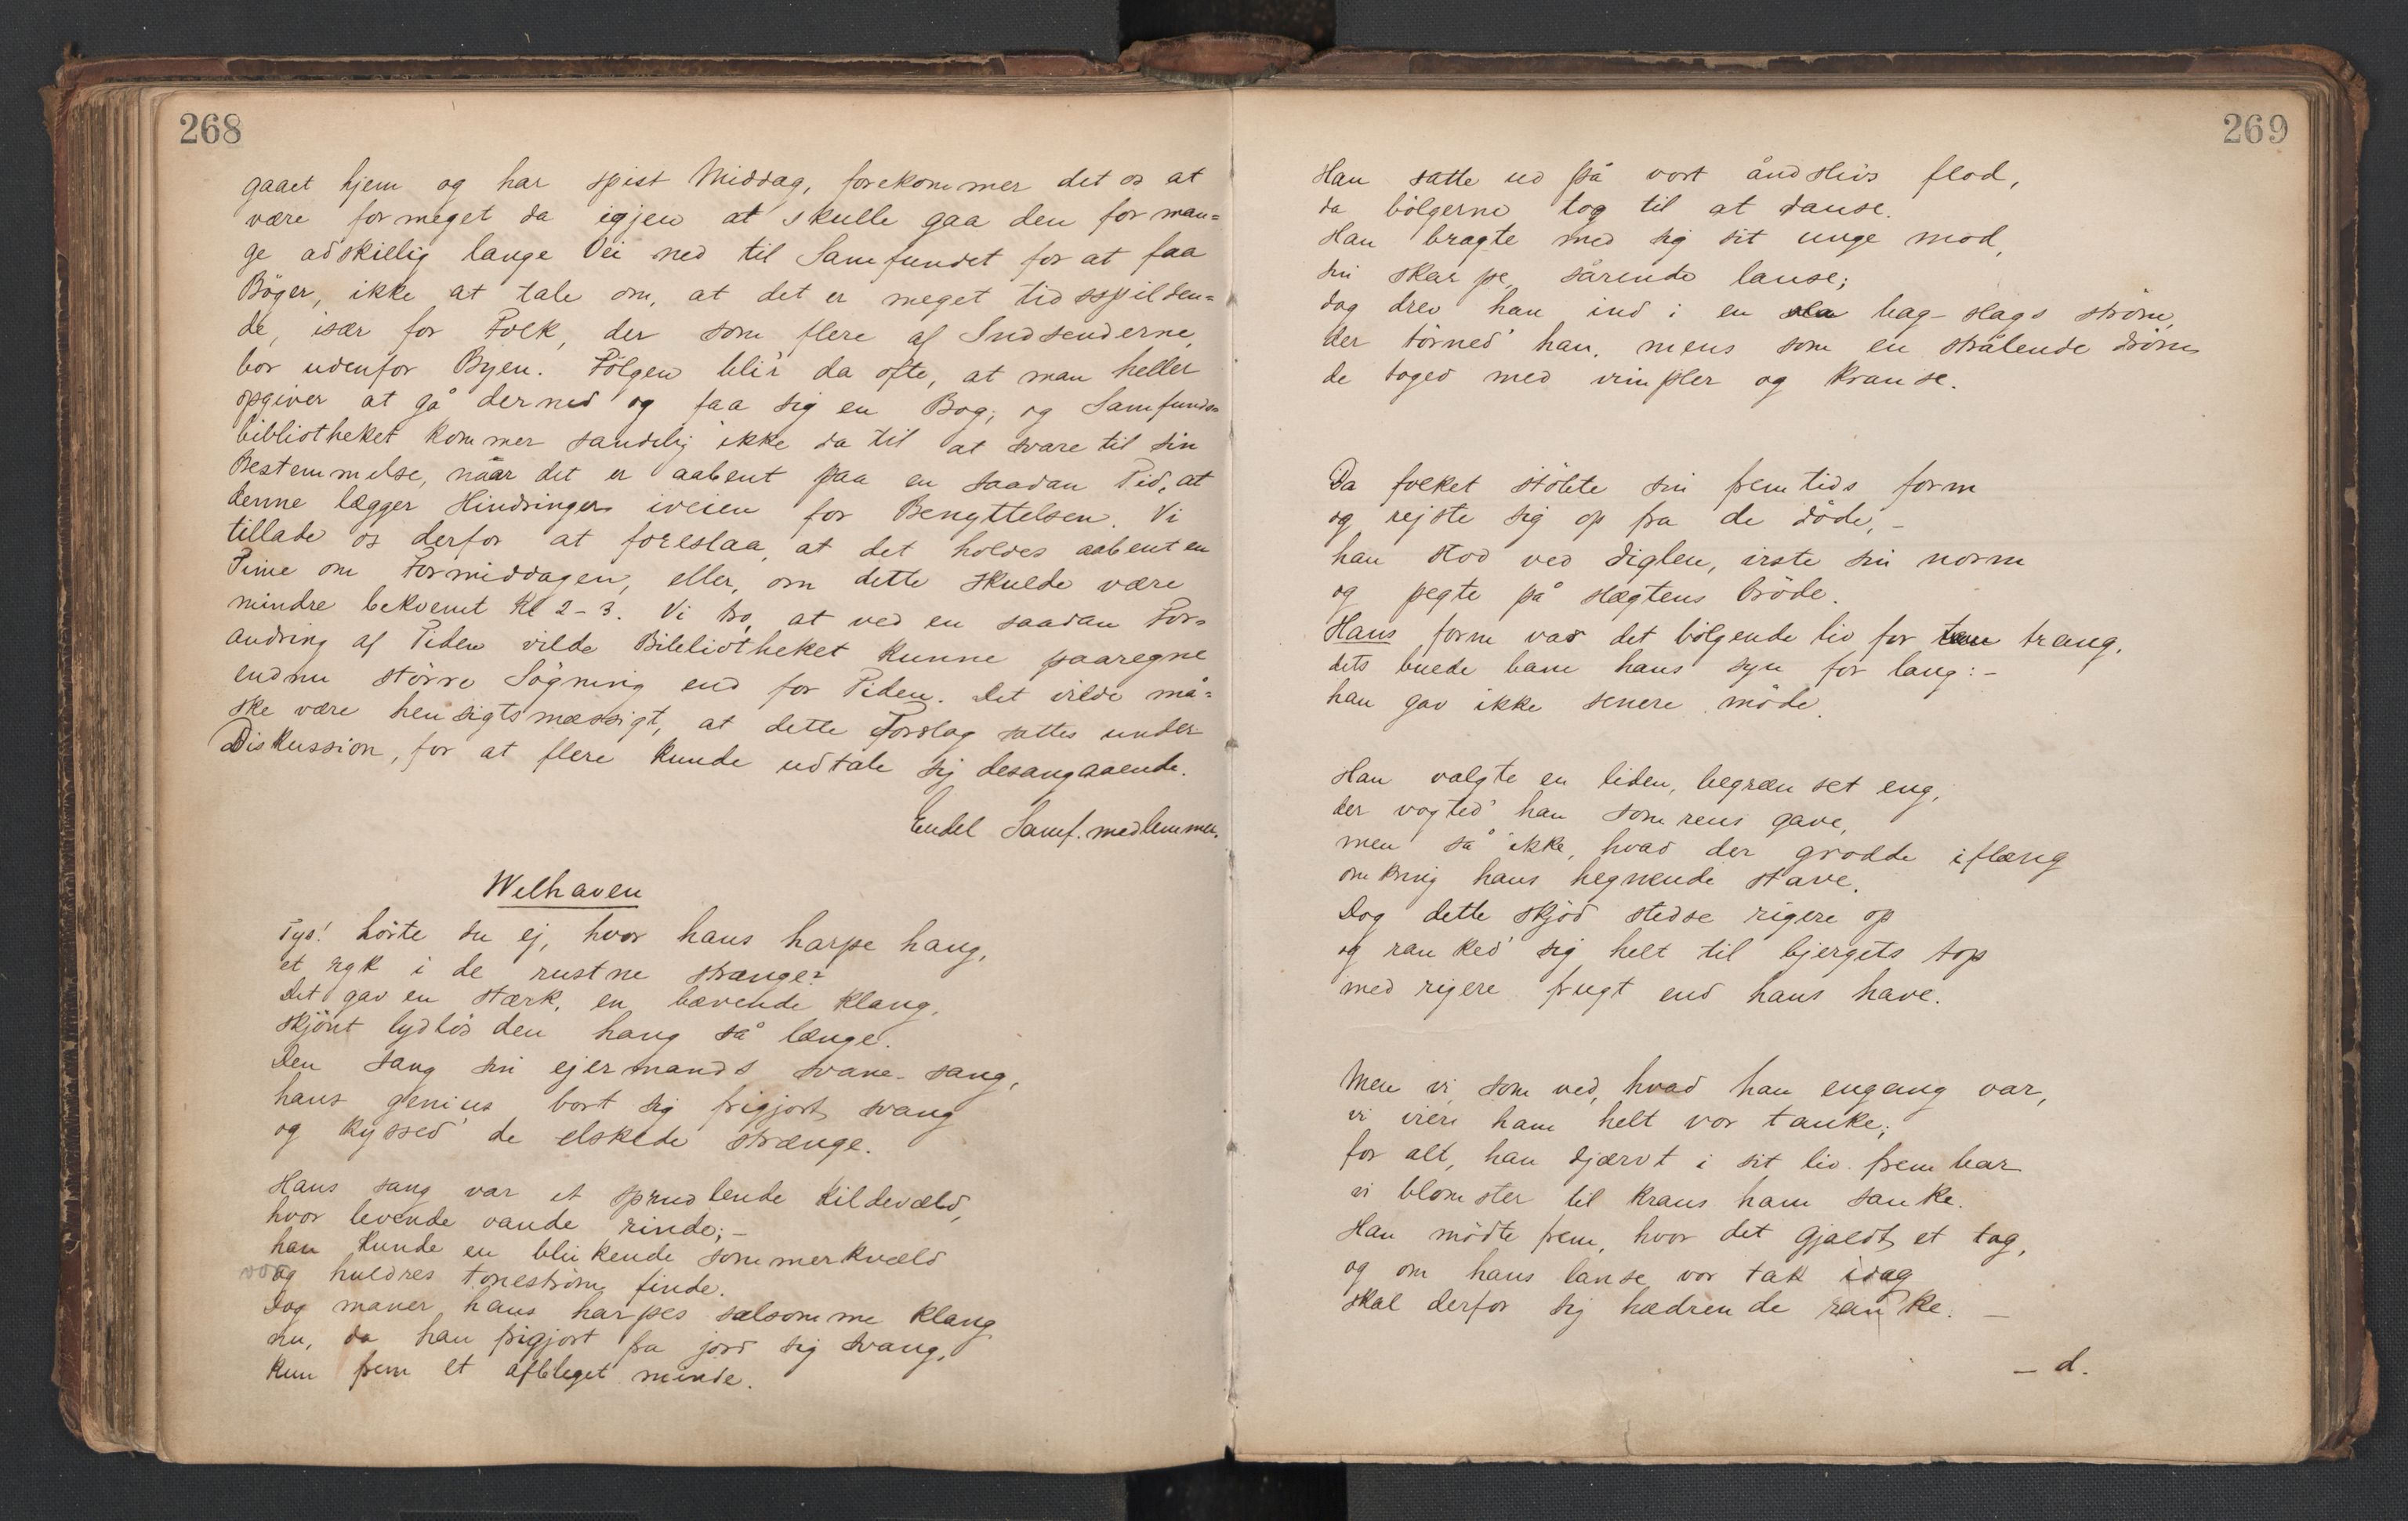 268
gaaet hjem og har spist Middag, forekommer det os at
være formeget da igjen at skulle gaa den for man=
ge adskillig lange Vei ned til Samfundet for at faa
Böger, ikke at tale om, at det er meget tidsspilden=
de, især for Folk, der som flere af Indsenderne,
bor udenfor Byen. Fölgen bli'r da ofte, at man heller
opgiver at gå derned og faa sig en Bog; og Samfunds=
bibliotheket kommer sandelig ikke da til at svare til sin
Bestemmelse, naar det er aabent paa en saadan Tid, at
denne lægger Hindringer iveien for Benyttelsen. Vi
tillade os derfor at foreslaa, at det holdes aabent en
Time om Formiddagen, eller, om dette skulde være
mindre bekvemt Kl 2-3. Vi tro, at ved en saadan For=
andring af Tiden vilde Bibliotheket kunne paaregne
endnu större Sögning end for Tiden. Det vilde må=
ske være hensigtsmæssigt, at dette Forslag sattes under
Diskussion, for at flere kunde udtale sig desangaaende.
Endel Samf. medlemmer.
Welhaven
Tys! hörte du ej, hvor hans harpe hang,
et ryk i de rustne strænge?
Det gav en stærk, en bævende klang,
skjönt lydlös den hang så længe.
Den sang sin ejermands svane-sang,
hans genius bort sig frigjort svang
og kyssed' de elskede strænge.
Hans sang var et sprudlende kildevæld,
hvor levende vande rinde;-
han kunde en blinkende sommerkvæld
vor og huldres toneström finde.
Dog maner hans harpes sælsomme klang
nu, da han frigjort fra jord sig svang,
kun frem et afbleget minde.
269
Han satte ud på vort åndslivs flod,
da bölgerne tog til at danse.
Han bragte med sig sit unge mod,
sin skarpe, sårende lanse;
dog drev han ind i en bag-slags ström,
der törned' han, mens som en strålende dröm
de toged med vimpler og kranse.
Da folket stöbte sin fremtids form
og rejste sig op fra de döde,-
han stod ved diglen, irste sin norm
og pegte på slægtens bröde.
Hans form var det bölgende liv for trang,
dets buede bane hans syn for lang:-
han gav ikke senere möde.
Han valgte en liden, begrænset eng,
der vogted' han somrens gave,
men så ikke, hvad der grodde iflæng
omkring hans hegnende stave.
Dog dette skjöd stedse rigere op
og ranked' sig helt til bjergets top
med rigere frugt end hans have.
Men vi, som ved, hvad han engang var,
vi vier ham helt vor tanke;
for alt, han djærvt i sit liv frembar
vi blomster til krans ham sanke.
Han mödte frem, hvor det gjaldt et tag,
og om hans lanse vor tak idag
skal derfor sig hædrende ranke. —
— d.